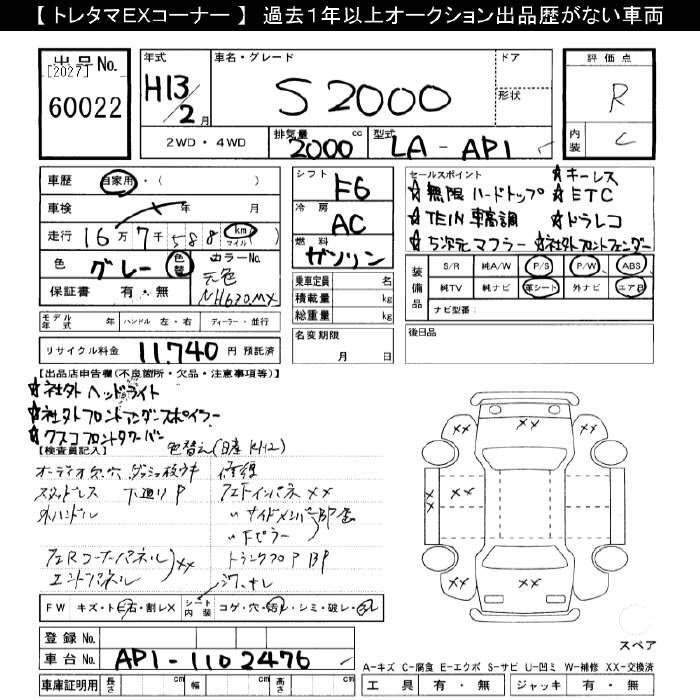 【 トレタマEXコーナー 】 過去1年以上オークション出品歴がない車両
出品No.
[2027]
60022
年式 H13/2月
車名・グレード S2000
ドア
形状
評価点 R
内装 C
2WD・4WD
排気量 2000 cc
型式 LA-AP1
車歴 自家用・( )
車検 年 月
走行 16万7千588 km マイル
色 グレー 色替
カラーNo. 元色 NH630MX
保証書 有・無
シフト F6
冷房 AC
燃料 ガソリン
乗車定員 名
積載量 kg
総重量 kg
セールスポイント
☆キーレス
☆無限ハードトップ ☆ETC
☆TEIN車高調 ☆ドラレコ
☆5次元マフラー ☆社外フロントフェンダー
装備品
S/R 純A/W P/S P/W ABS
純TV 純ナビ 革シート 外ナビ エアB
ナビ型番:
モデル年式 年 ハンドル 左・右 ディーラー・並行
リサイクル料金 11,740 円 預託済
名変期限 月 日
後日品
【出品店申告欄(不良箇所・欠品・注意事項等)】
☆社外ヘッドライト
☆社外フロントアンダースポイラー
☆クスコフロントタワーバー
【検査員記入】 色替え(日産 KH2)
オーディオ欠、穴 ダッシュ枚ウキ
スタッドレス 下廻りP
外ハンドル
フェRコーナーパネル
エンドパネル
××
修復
フェFインパネ ××
〃サイドメンバー
〃Fピラー
トランクフロア BP
FW キズ・ト石・割レX
シート内装 コゲ・穴・汚レ・シミ・破レ・
登録No.
車台No. AP1-1102476
車庫証明用 長さ cm 幅 cm 高さ cm
××
××
××
××
××
××
スペア
A-キズ C-腐食 E-エクボ S-サビ U-凹ミ W-補修 XX-交換済
工具 有・無 ジャッキ 有・無